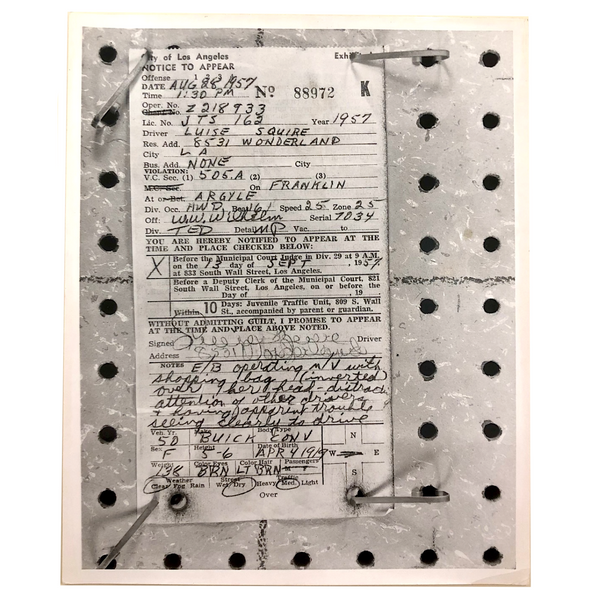 City of Los Angeles
NOTICE TO APPEAR
Offense 1 2 3
DATE AUG 28 1957
Time 1:30 PM No 88972 K
Oper. No. Z 218933
Lic. No. JTS 162 Year 1957
Driver LUISE SQUIRE
Res. Add. 8531 WONDERLAND
City L A
Bus. Add. NONE City
VIOLATION:
V.C. Sec. (1) 505.A (2) (3)
M.C. Sec. On FRANKLIN
At or Bet. ARGYLE
Div. Occ. HWD Beat 61 Speed 25 Zone 25
Off: W.W. Wilhelm Serial 7034
Div. TED Detail MP Vac. to
YOU ARE HEREBY NOTIFIED TO APPEAR AT THE
TIME AND PLACE CHECKED BELOW:
X Before the Municipal Court Judge in Div. 29 at 9 A.M.
on the 13 day of SEPT, 1957
at 833 South Wall Street, Los Angeles.
Before a Deputy Clerk of the Municipal Court, 821
South Wall Street, Los Angeles, on or before the
Day of , 19
Within 10 Days: Juvenile Traffic Unit, 809 S. Wall
St., accompanied by parent or guardian.
WITHOUT ADMITTING GUILT, I PROMISE TO APPEAR
AT THE TIME AND PLACE ABOVE NOTED.
Signed Driver
Address
NOTES E/B operating M/V with
shopping bag (inverted)
over her head - distract
attention of other drivers
& having apparent trouble
seeing clearly to drive
Veh. Yr. Make Body Type
50 BUICK CONV N
Sex Height Date of Birth
F 5-6 APR 4 1919 W E
Weight Color Eyes Color Hair Passengers
138 BRN LT BRN M F S
Weather Street Traffic
Clear Fog Rain Wet Dry Heavy Med. Light
Over